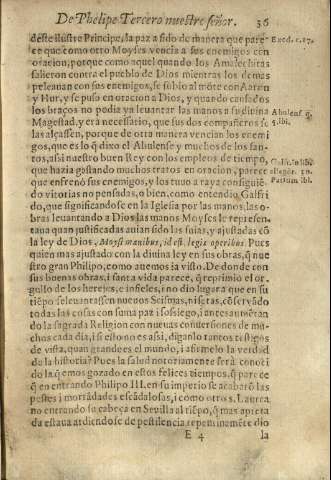 De Phelipe Tercero nuestre señor. 36
deste Ilustre Principe, la paz a sido de manera que pare-
ce que como otro Moyses vencia a sus enemigos con
oracion, porque como aquel quando los Amalechitas
salieron contra el pueblo de Dios mientras los demas
peleauan con sus enemigos, se subio al mõte con Aaron
y Hur, y se puso en oracion a Dios, y quando cansados
los braços no podia ya leuantar las manos a su diuina
Magestad, y era necessario, que sus dos compañeros se
las alçassen, porque de otra manera vencian los enemi
gos, que es lo q̃ dixo el Abulense y muchos de los san-
tos, assi nuestro buen Rey con los empleos de tiempo,
que hazia gastando muchos tratos en oracion, parece
que enfrenò sus enemigos, y los tuuo a raya consiguiẽ-
do vitorias no pensadas, o bien, como entendio Galfri
do, que significandose en la Iglesia por las manos, las o-
bras leuantando a Dios las manos Moyses le represen-
taua quan justificadas auian sido las suias, y ajustadas cõ
la ley de Dios, Moysi manibus, id est, legis operibus. Pues
quien mas ajustado con la diuina ley en sus obras, q̃ nue
stro gran Philipo, como auemos ia visto. De donde con
sus buenas obras, i santa vida parece, q̃ reprimiò el or-
gullo de los herejes, e infieles, i no dio lugara que en su
tiẽpo se leuantassen nueuos Scismas, ni setas, cõseruãdo
todas las cosas con suma paz i sosiego, i antes aumẽtan
do la sagrada Religion con nueuas conuersiones de mu-
chos cada dia, i si esto no es assi, diganlo tantos testigos
de vista, quan grande es el mundo, i afirmelo la verdad
de la historia? Pues la salud notoriamente serà conoci
do la q̃ emos gozado en estos felices tiempos, q̃ parece
q̃ en entrando Philipo III. en su imperio se acabarõ las
pestes i mortãdades escãdalosas, i como otro s. Laurea
no entrando su cabeça en Seuilla al tiẽpo, q̃ mas apreta
da estaua ardiendose de pestilencia, repentinamẽte dio
E 4 la
Exod. c. 17.
Abulens. q.
5. ibi.
Galf. in lib.
allegor.
Partum ibi.